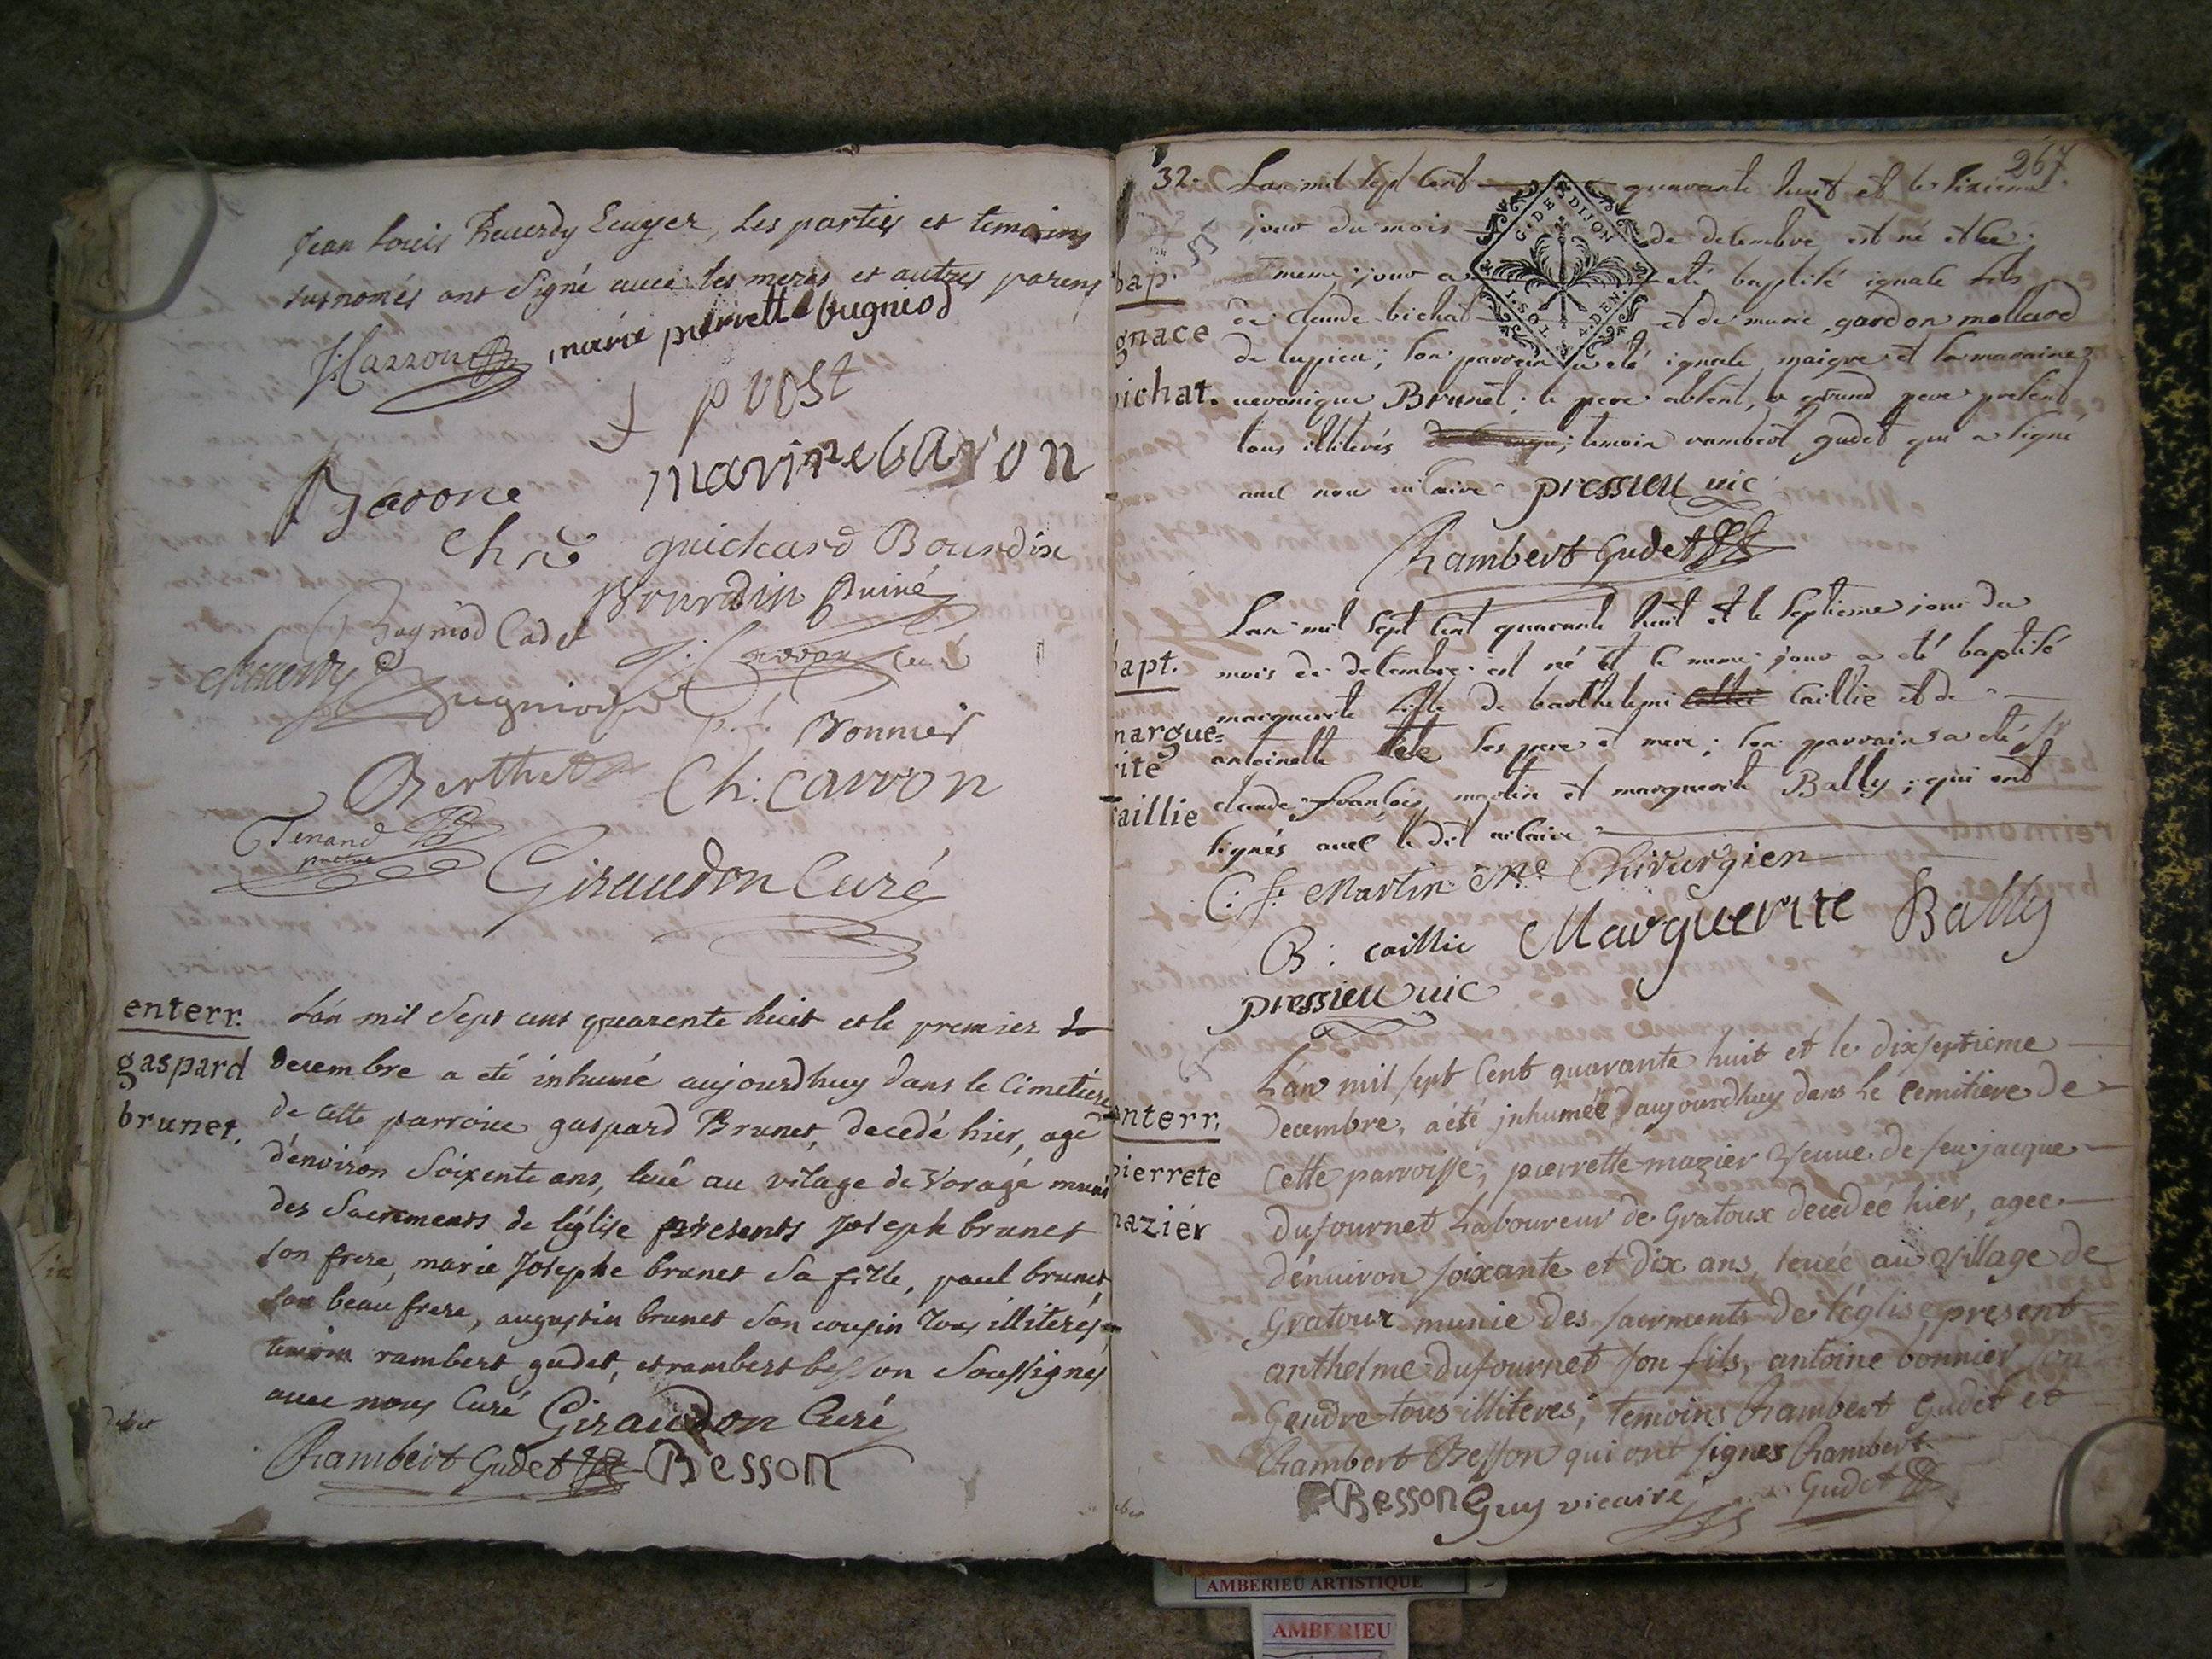 Jean Louis Reverdy Ecuyer, les parties et temoins
susnomés ont signé avec les meres et autres parens
marie pierrette bugniod
p vost
Barone marine baron
guichard Bourdin
Bourdin puiné
Bugniod Cadet
Bugniod
Bonnier
Berthet Ch: Carron
Tenand
Giraudon Curé
enterr.
gaspard
brunet.
L'an mil Sept cent quarente huit et le premier
decembre a eté inhumé aujourdhuy dans le Cimetiere
de cette parroice gaspard Brunet, decedé hier, agé
d'environ Soixente ans, levé au vilage de Voragé muni
des Sacrements de l'église présents Joseph brunet
son frere, marie Josephe brunet Sa fille, paul brunet
son beau frere, augustin brunet Son cousin tous illiterés,
temoin rambert gudet, et rambert besson Soussignés
avec nous Curé Giraudon Curé
Rambert Gudet Besson
267
32. L'an mil sept cent quarante huit et le sixieme
jour du mois de decembre est né et le
meme jour a eté baptisé ignace fils
de claude bichat et de marie gardon mollard
de lupieu; son parrain a eté ignace maigre et la maraine
veronique Brunet; le pere absent, le grand pere present
tous illiterés temoin rambert gudet qui a signé
avec nou vicaire pressieu vic
Rambert Gudet
bap.
gnace
bichat.
L'an mil sept cent quarante huit et le septieme jour du
mois de decembre est né et le meme jour a eté baptisé
marguerite fille de barthelemi caillie et de
antoinette tête ses pere et mere; son parrain a eté sr
claude françois martin et marguerite Bally; qui ont
signés avec le dit vicaire
bapt.
margue=
rite
caillie
C: f: Martin Me Chirurgien
B: caillie Marguerite Bally
pressieu vic
L'an mil sept Cent quarante huit et le dixseptieme
decembre, a été jnhumée aujourdhuy dans le cemitière de
Cette parroisse, pierrette mazier veuve de feu jacque
dufournet Laboureur de Gratoux decedée hier, agée
d'environ soixante et dix ans, levée au village de
Gratoux munie des sacrments de l'église, present
anthelme dufournet son fils, antoine bonnier son
Gendre tous illiterés, temoins Rambert Gudet et
Rambert Besson qui ont signes Rambert
Besson Guy vicaire Gudet
enterr.
pierrete
maziér
G. DE DIJON
AMBERIEU ARTISTIQUE
AMBERIEU